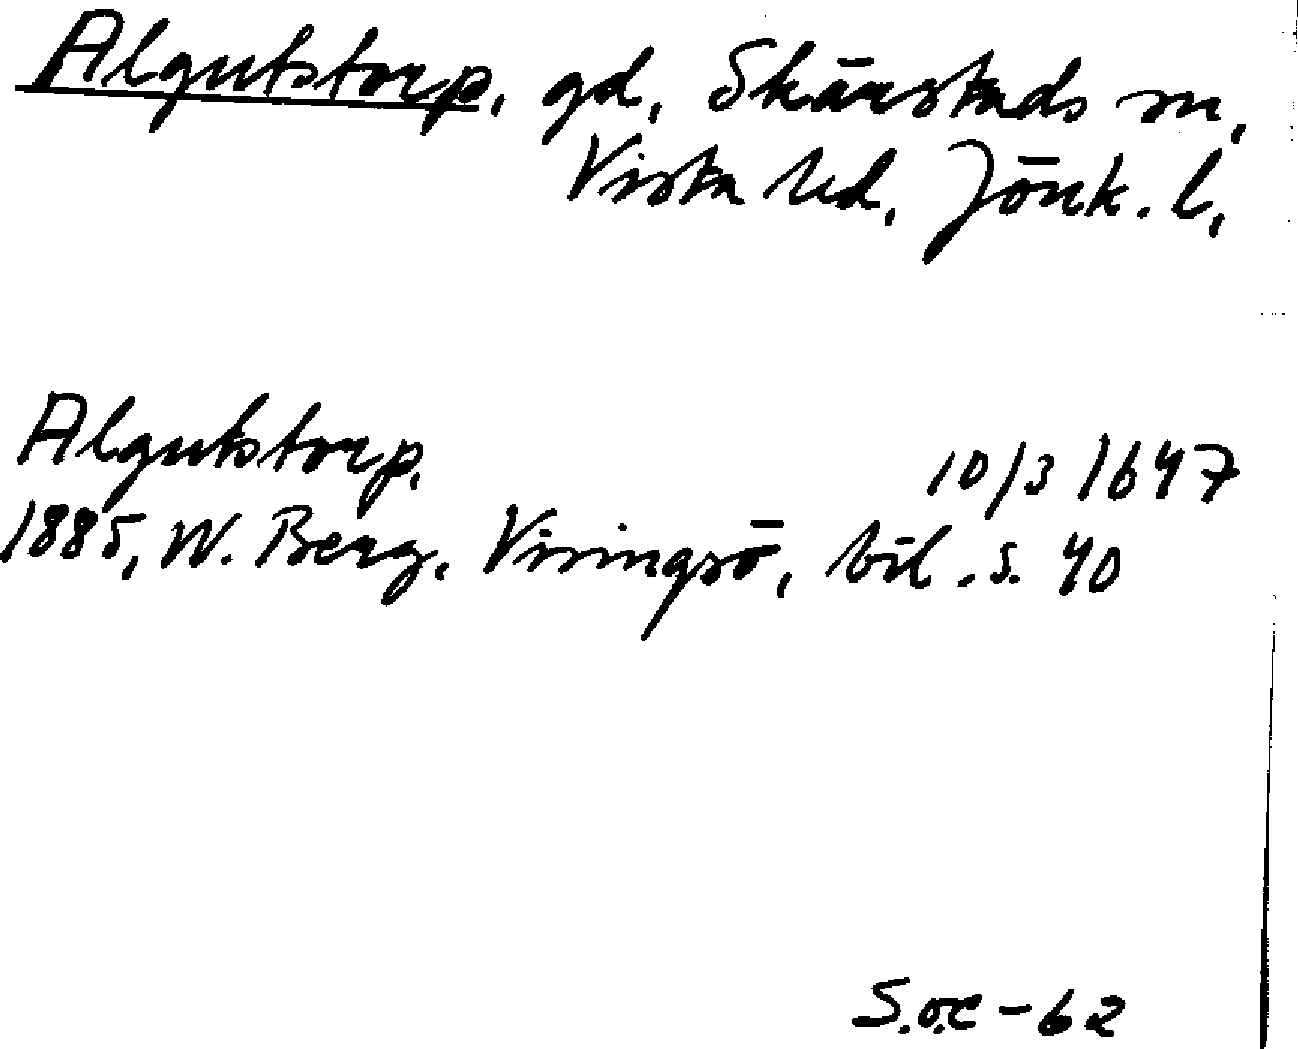 Algutstorp, gd, Skärstads sn,
Vista hd, Jönk. l,
Algutstorp, 10/3 1647
1885, W. Berg, Visingsö, bil. s. 40
S.o.C - 62